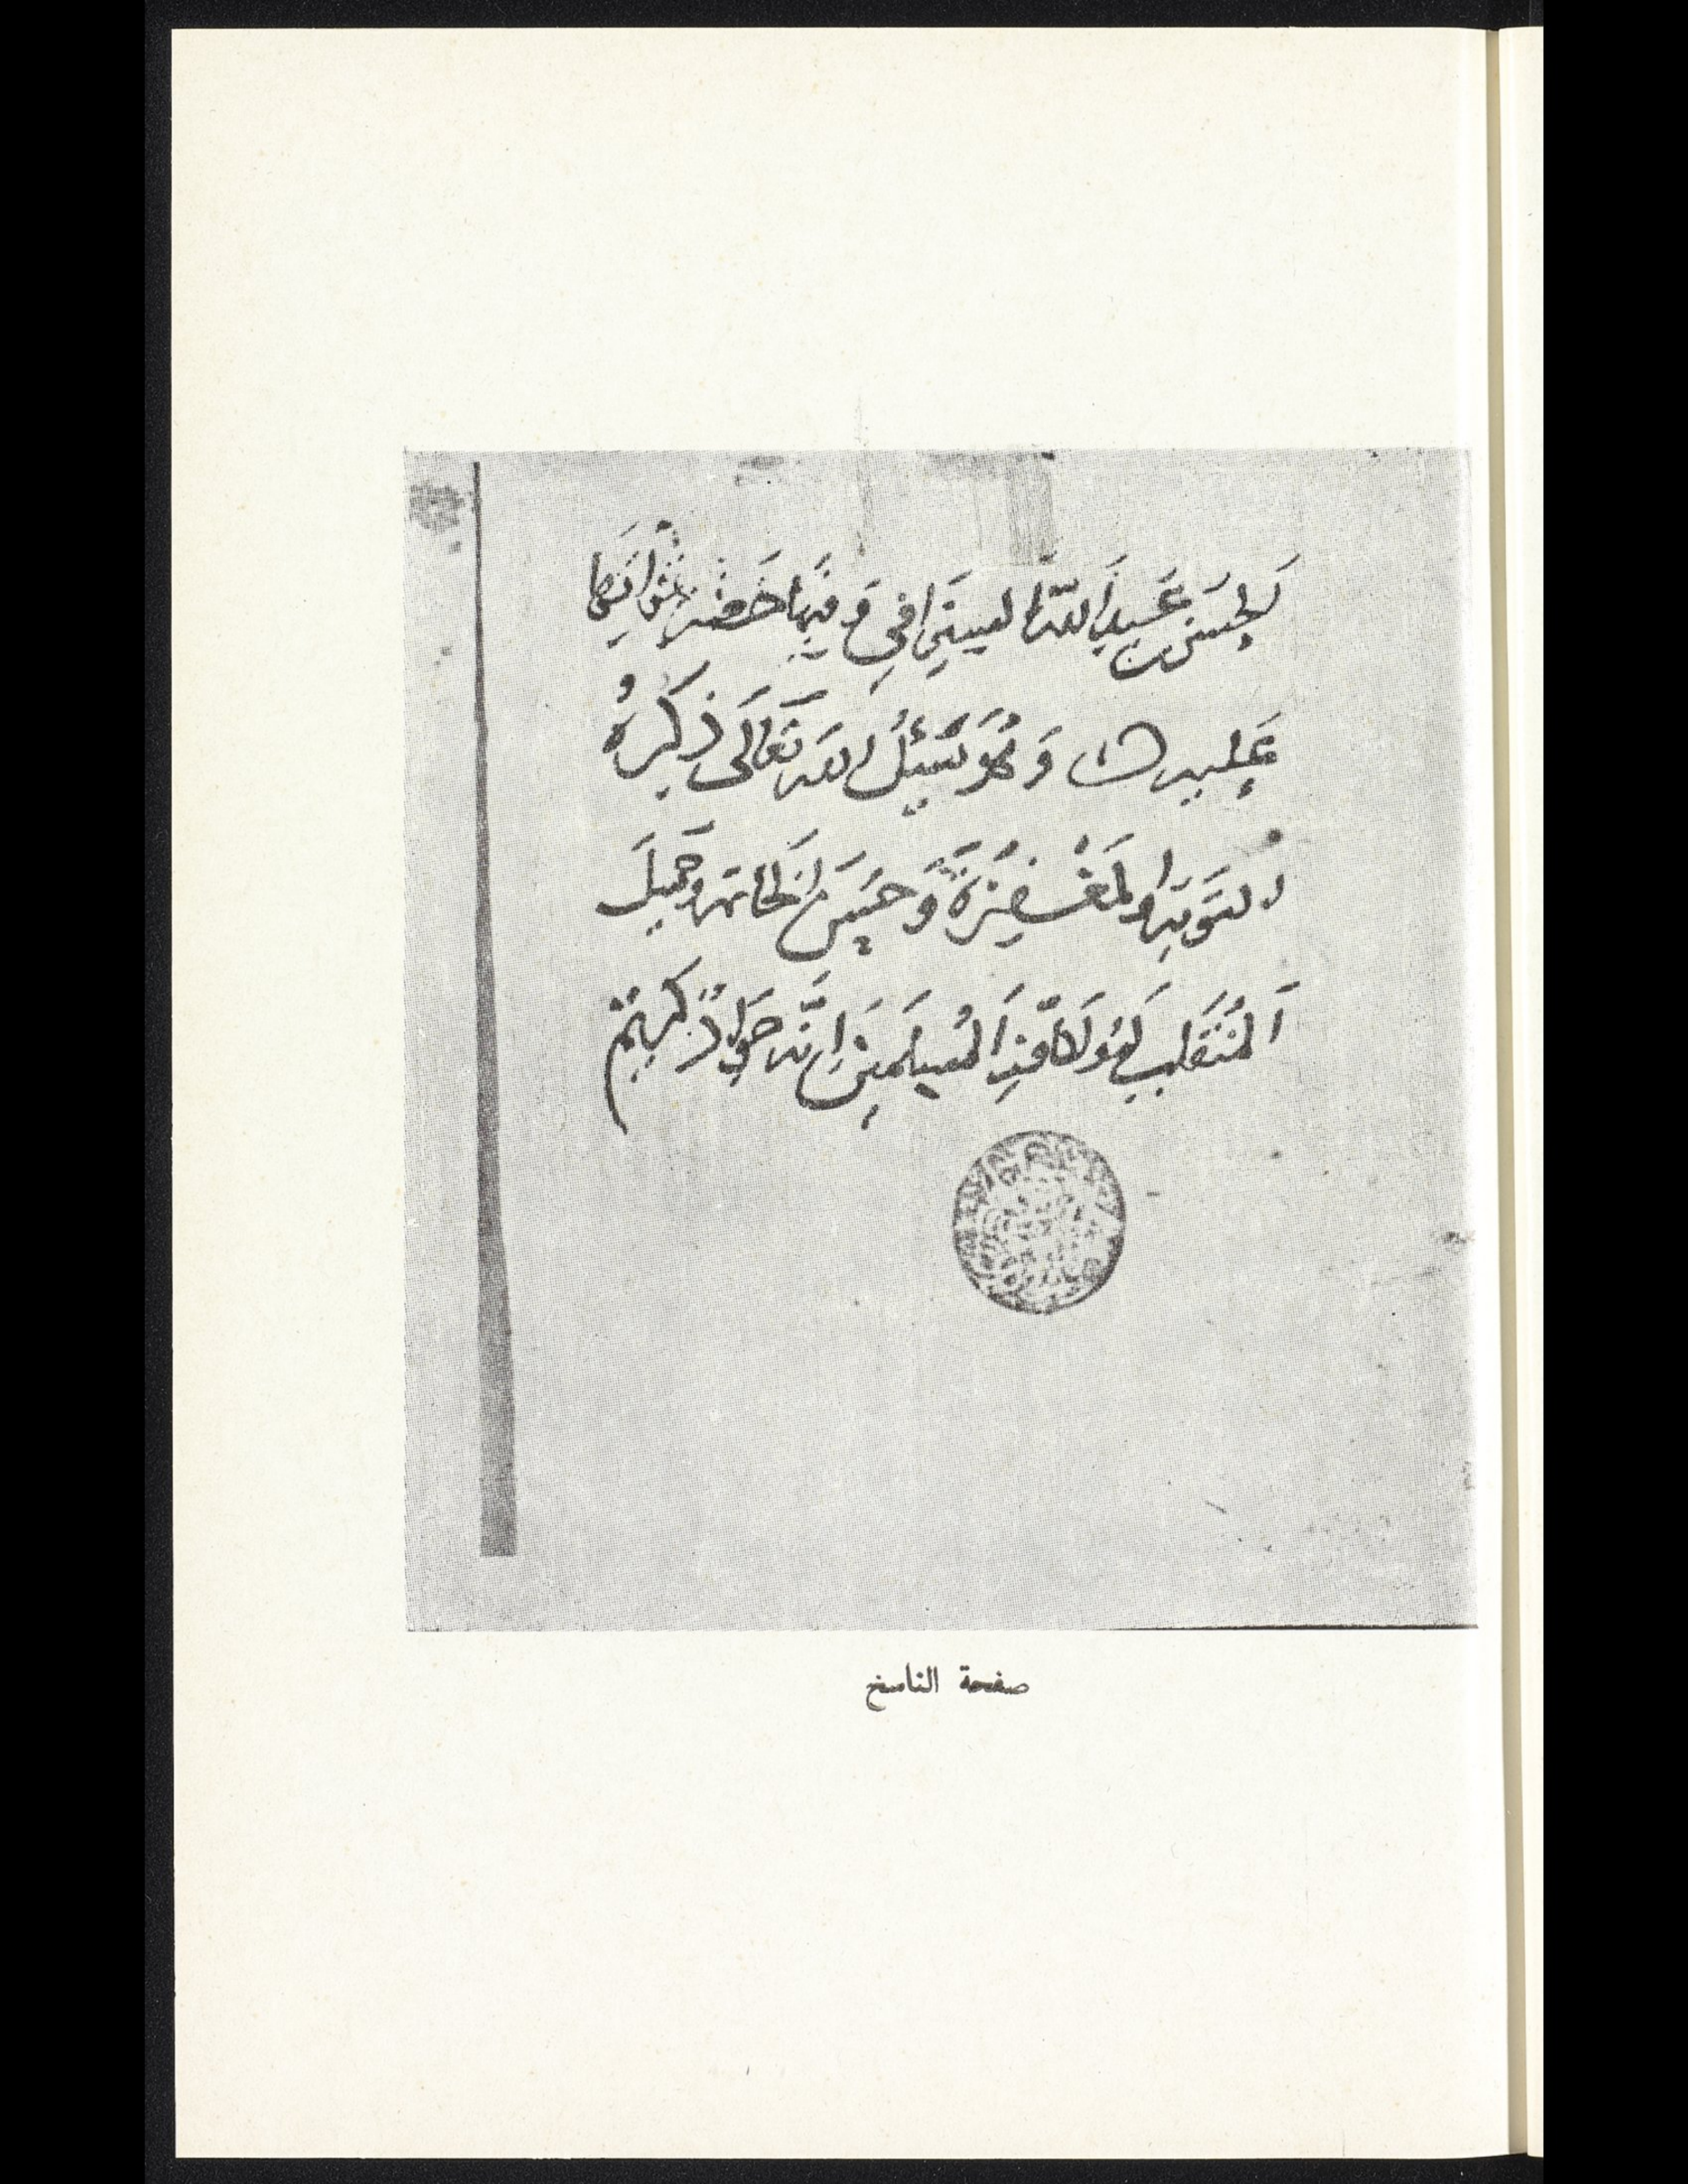 لحسن بن عبد الله السيرافي و
عليه وَهُوَ يَسْئلُ الله تَعَالَى ذِكرهُ
التوبة والمَغْفِرَةَ وَحُسنَ الخَاتمة وجَمِيلَ
اَلمُنْقَلَبِ لَهُ وَلكَافَّةِ اَلمُسلِمينَ اِنَّه جَوادٌ كَريمٌ
صفحة الناسخ